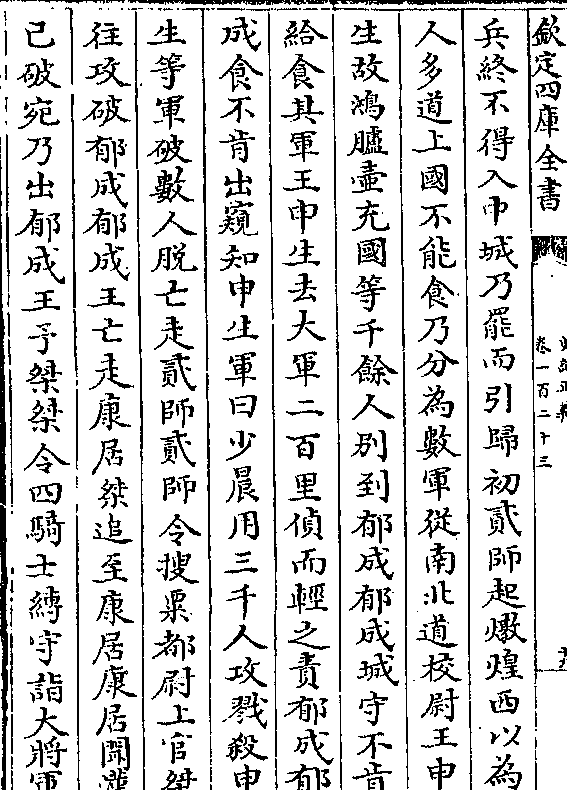 欽定四庫全書
卷一百二十三
兵終不得入中城乃罷而引歸初貳師起燉煌西以為
人多道上國不能食乃分為數軍從南北道校尉王申
生故鴻臚壷充國等千餘人別到郁成郁成城守不肯
給食其軍王申生去大軍二百里偵而輕之責郁成郁
成食不肯出窺知申生軍曰少晨用三千人攻戮殺申
生等軍破數人脫亡走貳師貳師令搜粟都尉上官桀
往攻破郁成郁成王亡走康居桀追至康居康居聞漢
已破宛乃出郁成王予桀桀令四騎士縛守詣大將軍